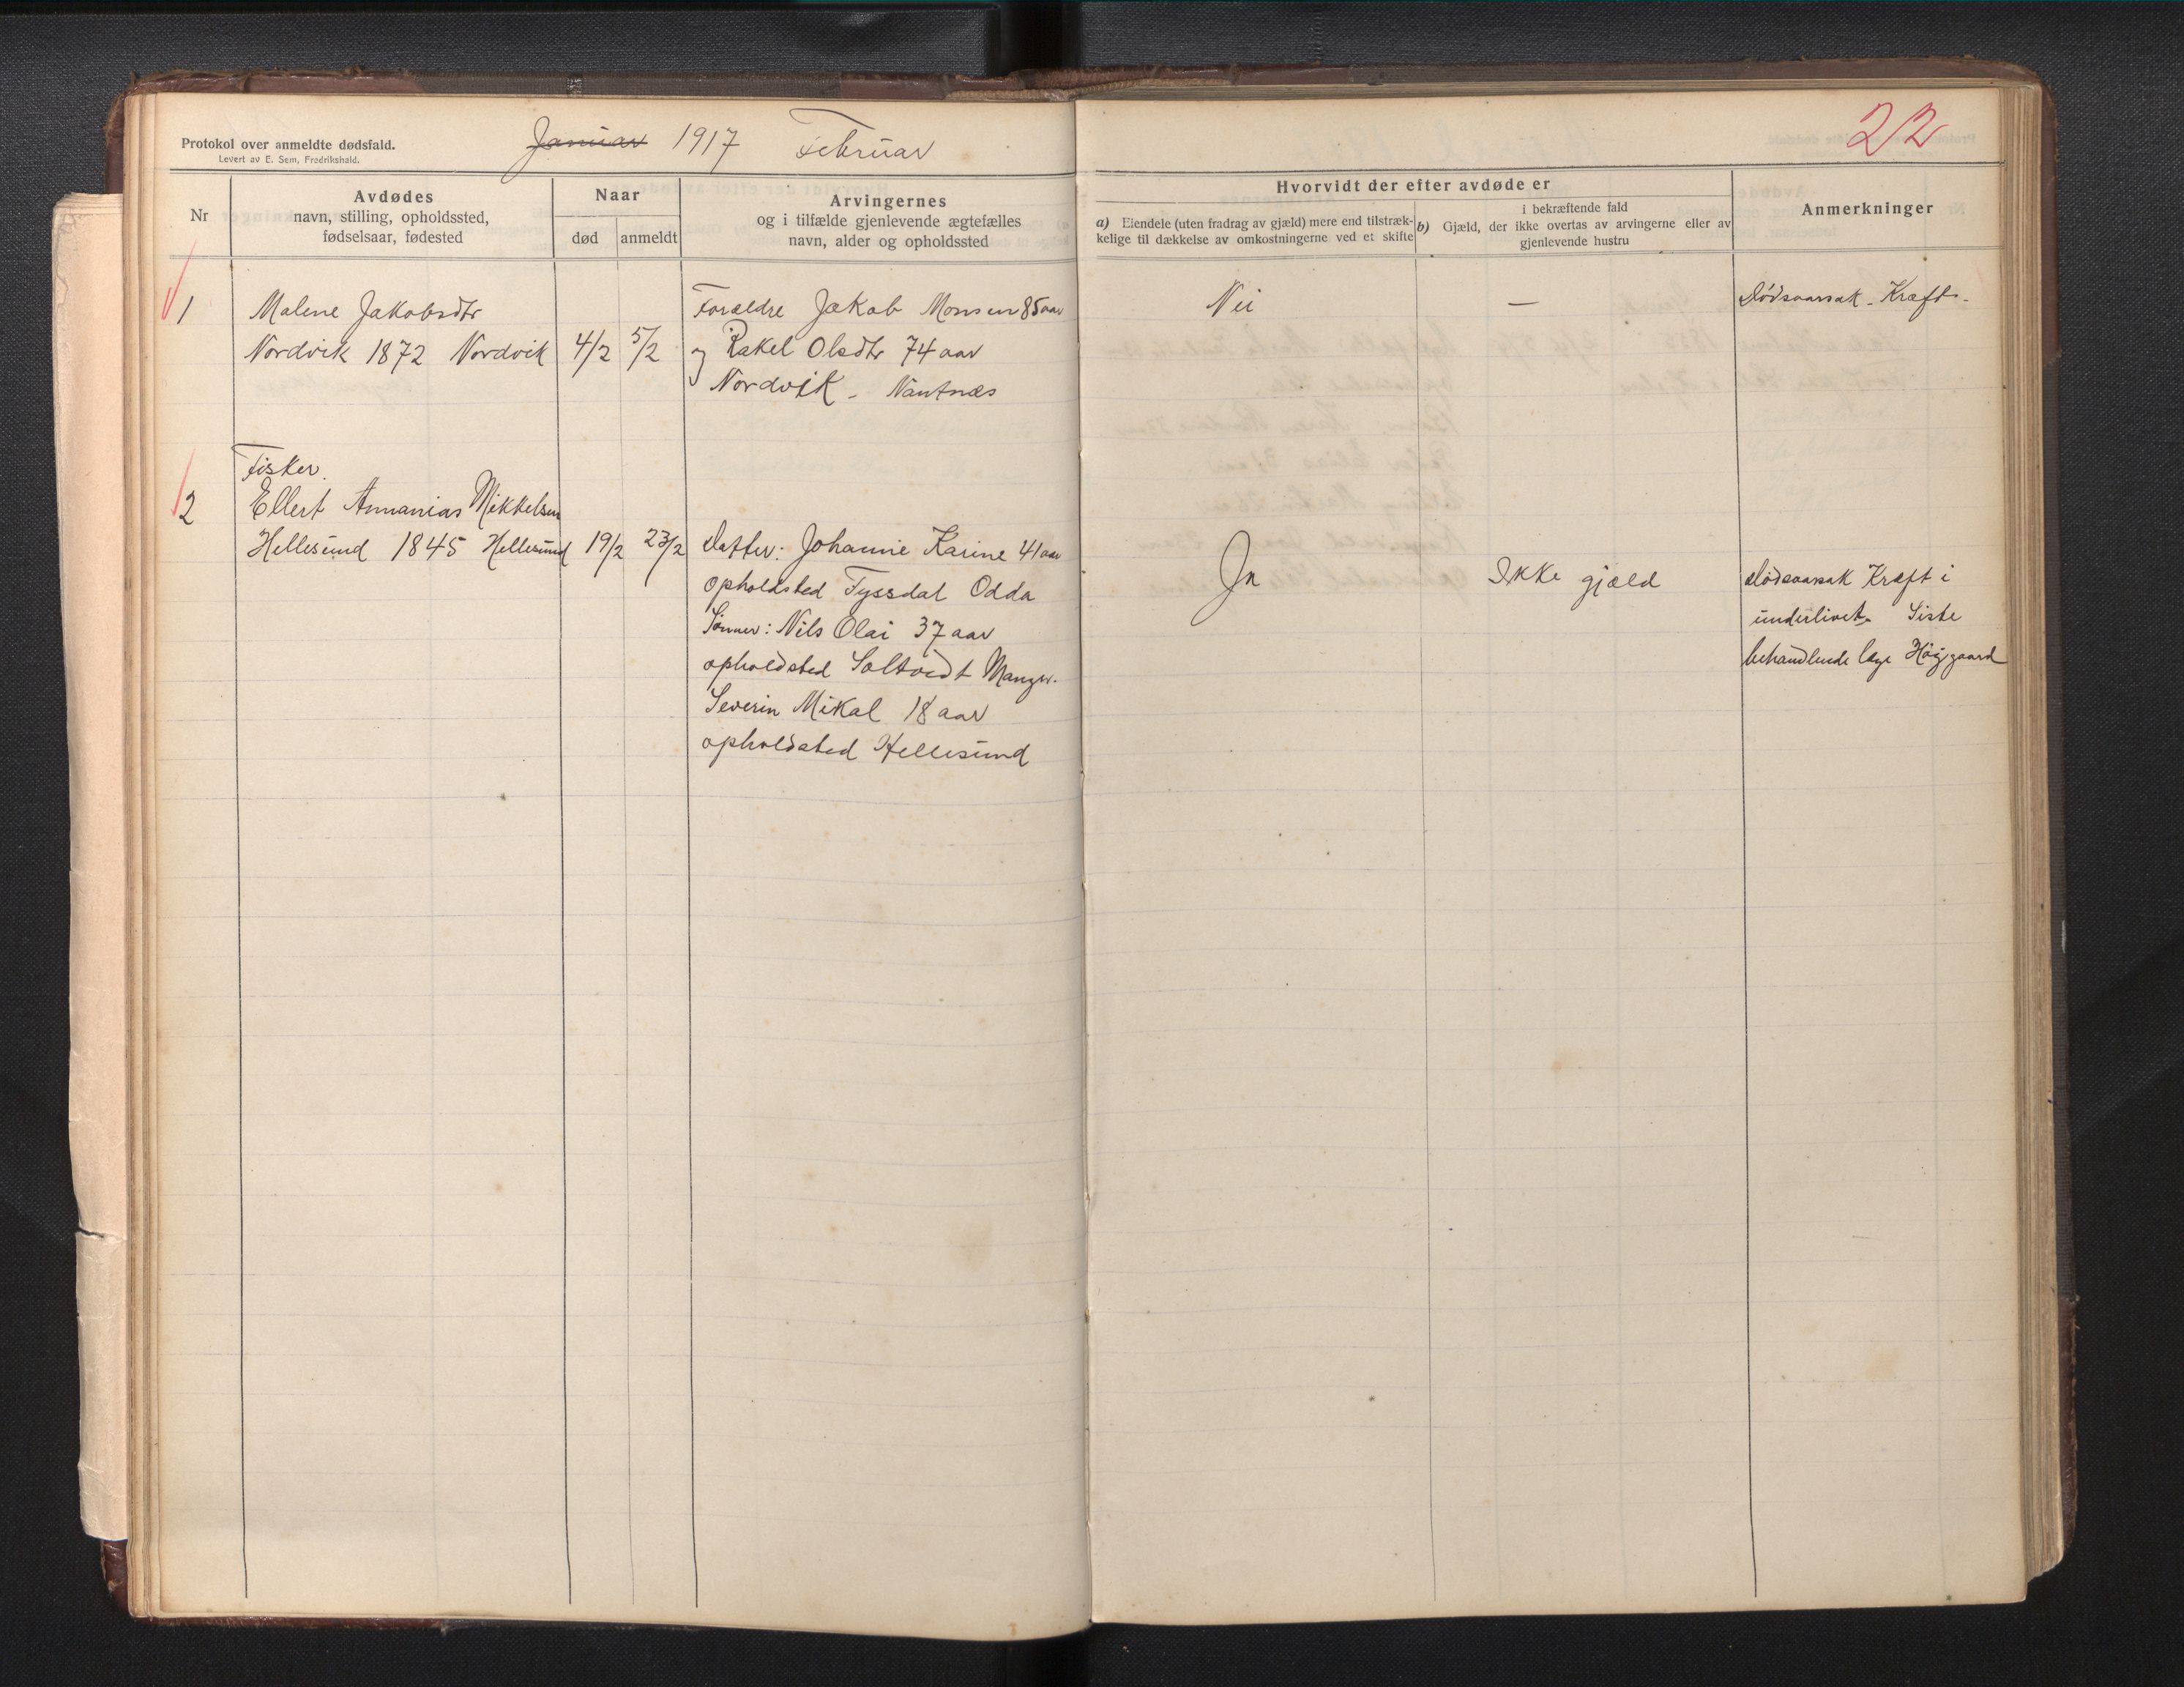 Protokol over anmeldte dødsfald.
Levert av E. Sem, Fredrikshald.
Januar 1917 Februar
22
Nr
Avdødes
navn, stilling, opholdssted,
fødselsaar, fødested
Naar
død
anmeldt
Arvingernes
og i tilfælde gjenlevende ægtefælles
navn, alder og opholdssted
Hvorvidt der efter avdøde er
a) Eiendele (uten fradrag av gjæld) mere end tilstræk-
kelige til dækkelse av omkostningerne ved et skifte
i bekræftende fald
b) Gjæld, der ikke overtas av arvingerne eller av
gjenlevende hustru
Anmerkninger
1
Malene Jakobsdtr
Nordvik 1872 Nordvik
4/2
5/2
Forældre Jakob Monsen 85 aar
og Rakel Olsdtr 74 aar
Nordvik -
Nei
—
Dødsaarsak - Kræft -
2
Fisker
Ellert Annanias Mikkelsen
Hellesund 1845 Hellesund
19/2
23/2
Datter: Johanne Karine 41 aar
opholdsted Tyssdal Odda
Sønner: Nils Olai 37 aar
opholdsted Soltvedt Manger.
Severin Mikal 18 aar
opholdsted Hellesund
Ja
Ikke gjæld
Dødsaarsak Kræft i
underlivet. Siste
behandlende læge Høygaard